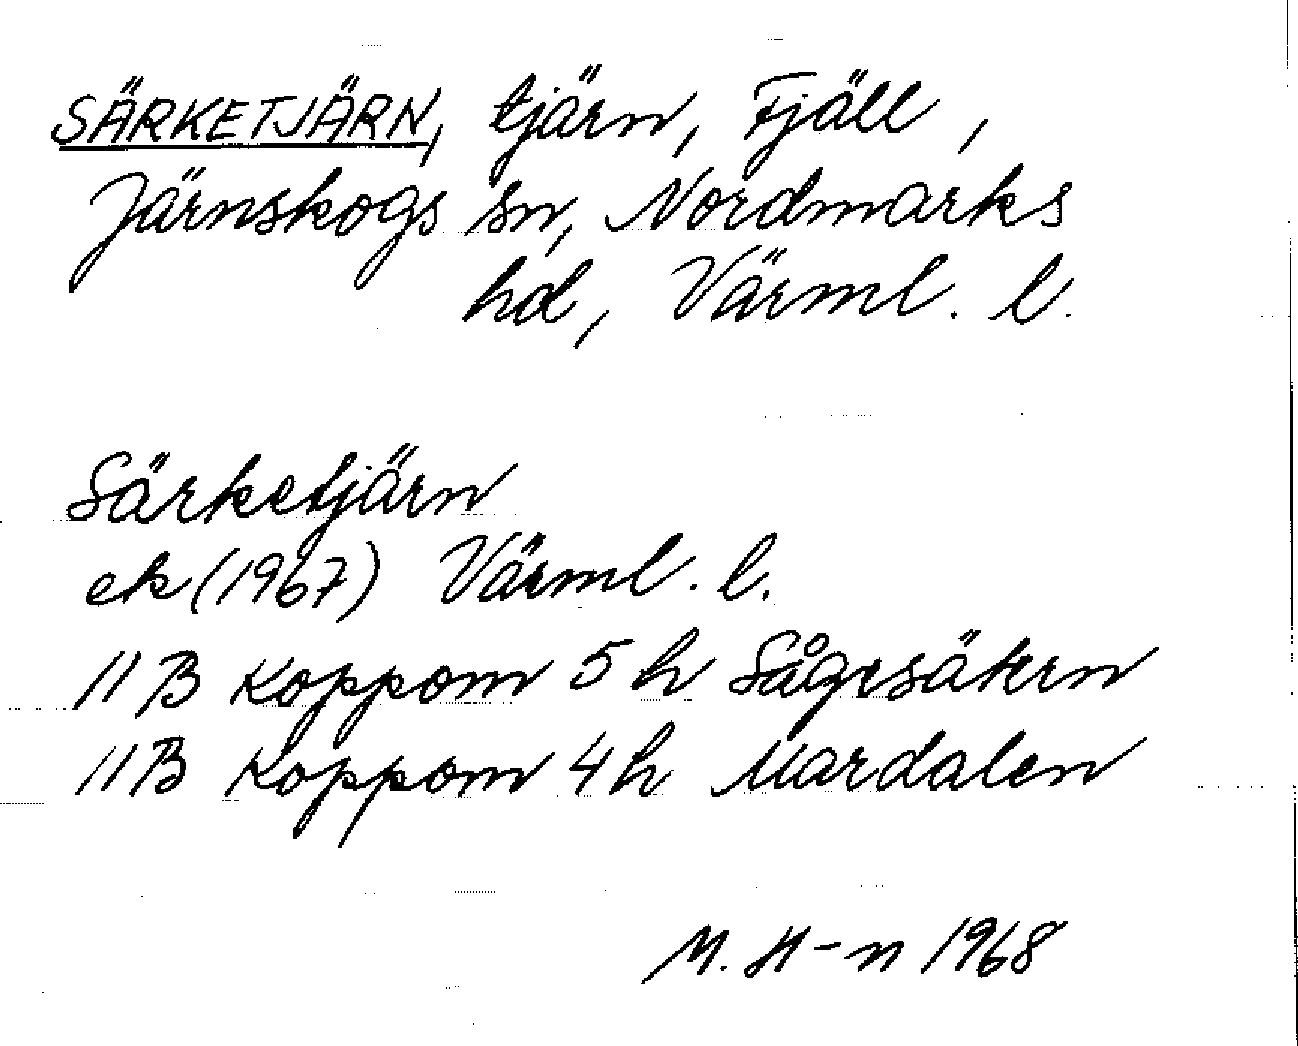 SÄRKETJÄRN, tjärn, Fjäll,
Järnskogs sn, Nordmarks
hd, Värml. l.
Särketjärn
ek (1967) Värml. l.
11 B Koppom 5 h Sågesäken
11 B Koppom 4 h Mardalen
M. H-n 1968